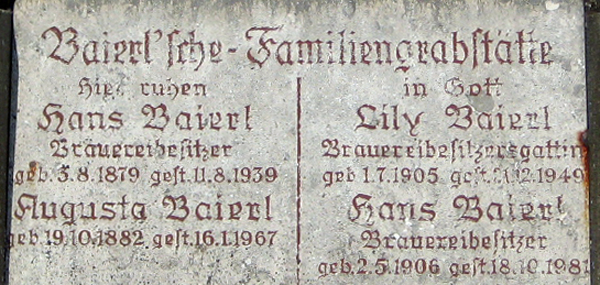 Baierl'sche-Familiengrabstätte
Hier ruhen
in Gott
Hans Baierl
Brauereibesitzer
geb. 3.8.1879 gest. 11.8.1939
Augusta Baierl
geb. 19.10.1882 gest. 16.1.1967
Lily Baierl
Brauereibesitzersgattin
geb 1.7.1905 gest.
Hans Baierl
Brauereibesitzer
geb. 2.5.1906 gest. 18.10.1981